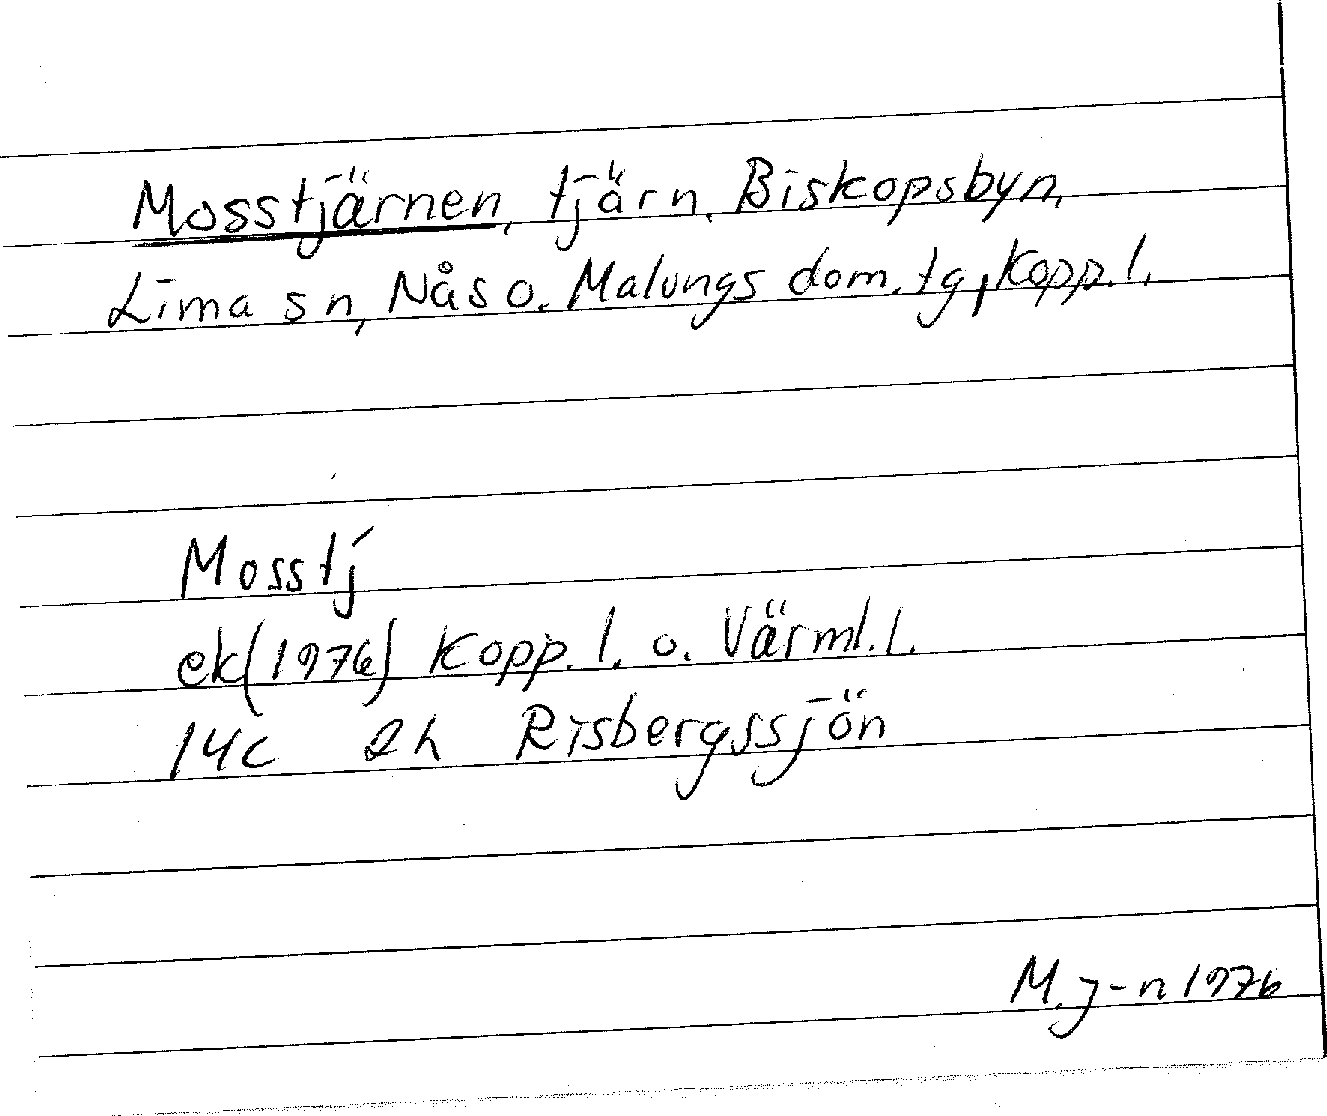 Mosstjärnen, tjärn, Biskopsbyn,
Lima sn, Nås o. Malungs dom. tg, Kopp. l.
Mosstj
ek(1976) Kopp. l. o. Värml. l.
14c 2h Risbergssjön
M. J-n 1976